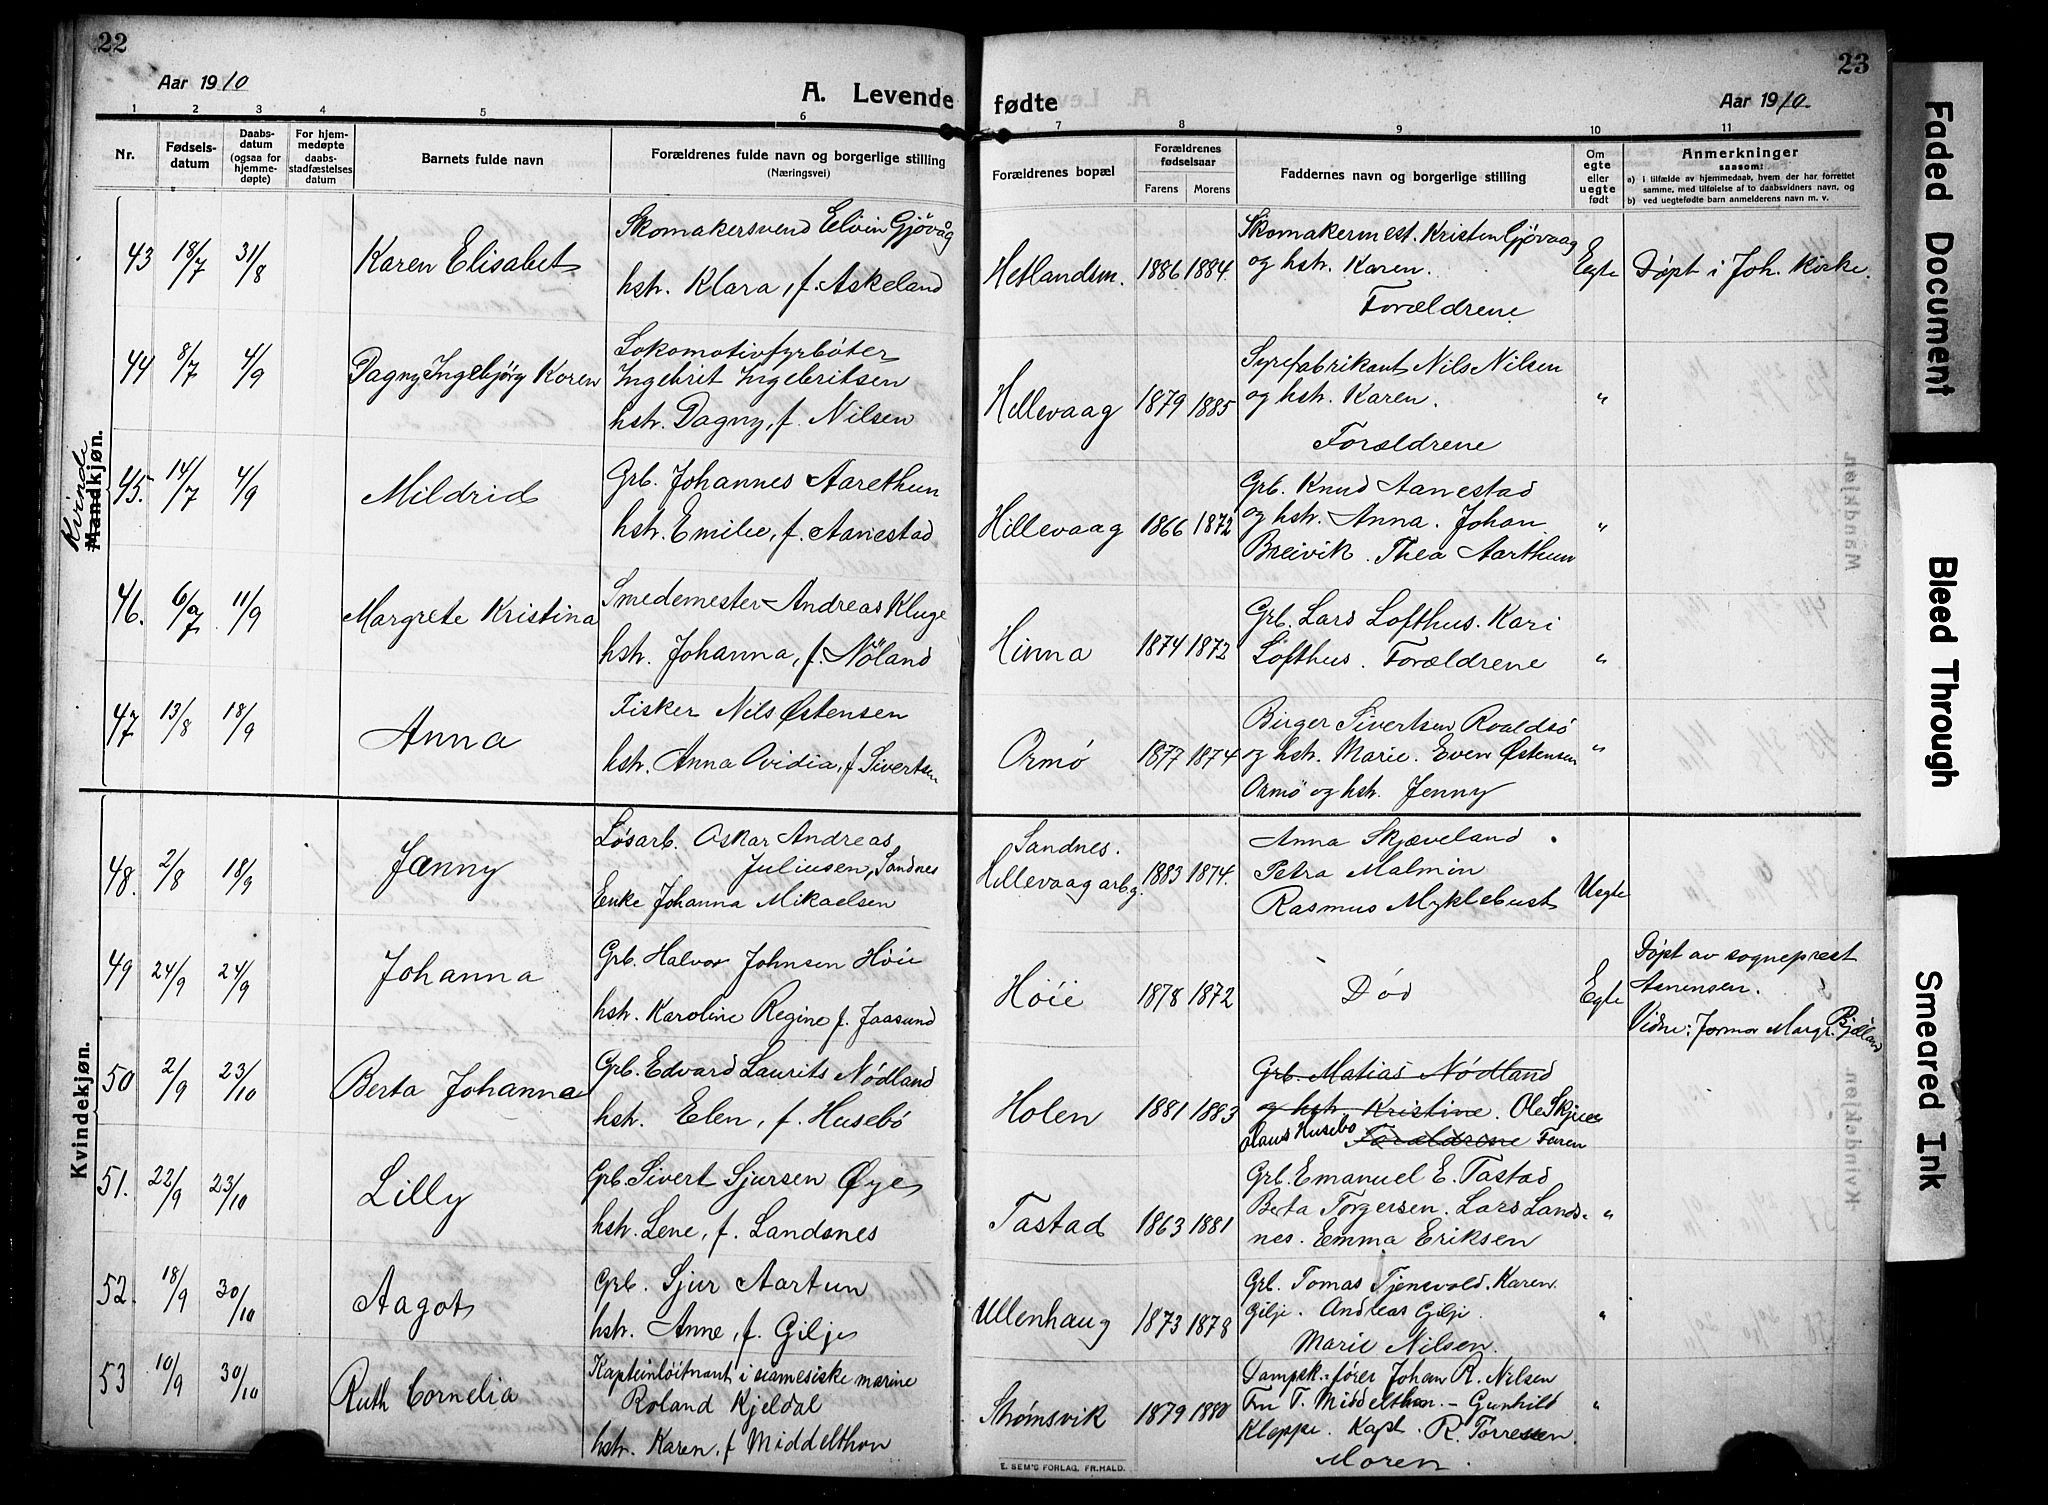 22
23
Aar 1910
A. Levende fødte
Aar 1910
1 2 3 4 5 6 7 8 9 10 11
Nr.
Fødsels-
datum
Daabs-
datum
(ogsaa for
hjemme-
døpte)
For hjem-
medøpte
daabs-
stadfæstelses
datum
Barnets fulde navn
Forældrenes fulde navn og borgerlige stilling
(Næringsvei)
Forældrenes bopæl
Forældrenes
fødselsaar
Farens Morens
Faddernes navn og borgerlige stilling
Om
egte
eller
uegte
født
Anmerkninger
saasom:
a) i tilfælde av hjemmedaab, hvem der har forrettet
samme, med tilføielse af to daabsvidners navn, og
b) ved uegtefødte barn anmelderens navn m. v.
Kvinde
Mandkjøn.
43 18/7 31/8 Karen Elisabet
Skomakersvend Eelvin Gjövåg
hstr. Klara, f. Askeland
Hetlandsm. 1886 1884
Skomakermest. Kristen Gjövaag
og hstr. Karen.
Forældrene
Egte Døpt i Joh. kirke.
44 8/7 4/9 Dagny Ingebjörg Karen
Lokomotivfyrbøter
Ingebrit Ingebritsen
hstr. Dagny, f. Nilsen
Hillevaag 1879 1885
Syrefabrikant Nils Nilsen
og hstr. Karen.
Forældrene
"
45. 14/7 4/9 Mildrid
Grb. Johannes Aarethun
hstr. Emilie, f. Aanestad
Hillevaag 1866 1872
Grb. Knud Aanestad
og hstr. Anna. Johan
Breivik. Thea Aarthun
"
46. 6/7 11/9 Margrete Kristina
Smedemester Andreas Kluge
hstr. Johanna, f. Nöland
Hinna 1874 1872
Grb. Lars Lofthus. Kari
Lofthus. Forældrene
"
47 13/8 18/9 Anna
Fisker Nils Østensen
hstr. Anna Ovidia, f. Sivertsen
Ormø 1877 1874
Birger Sivertsen Roaldsø
og hstr. Marie. Even Østensen
Ormø og hstr. Jenny
"
Kvindekjøn.
48. 2/8 18/9 Jenny
Løsarb. Oskar Andreas
Juliusen, Sandnes
Enke Johanna Mikaelsen
Sandnes.
Hillevaag arb.g. 1883 1874.
Anna Skjæveland
Petra Malmin
Rasmus Myklebust
Uegte
49 24/9 24/9 Johanna
Grb. Halvor Johnsen Höie
hstr. Karoline Regine f. Jaasund
Höie 1878 1872
Död
Egte
Döpt av sogneprest
Asnensen.
Vidne: Jormor Margr. Bjelland
50 2/9 23/10 Berta Johanna
Grb. Edvard Laurits Nødland
hstr. Elen, f. Husebö
Holen 1881 1883
Grb. Matias Nødland
og hstr. Kristine. Ole
Husebø Forældrene Faren
51. 22/9 23/10 Lilly
Grb. Sivert Sjursen Øye
hstr. Lene, f. Landsnes
Tastad 1863 1881
Grb. Emanuel E. Tastad
Berta Torgersen. Lars Lands-
nes. Emma Eriksen
"
52. 18/9 30/10 Aagot
Grb. Sjur Aartun
hstr. Anne, f. Gilje
Ullenhaug 1873 1878
Grb. Tomas Tjensvold. Karen
Gilje. Andreas Gilje.
Marie Nilsen.
"
53 10/9 30/10 Ruth Cornelia
Kapteinløitnant i siamesiske marine
Roland Kjeldal
hstr. Karen, f Middelthon
Strømsvik 1879 1880
Dampsk.-fører Johan R. Nilsen
Fru T. Middelthon. – Gunhild
Kleppe. Kapt. R. Torressen.
Moren.
"
E. SEM'S FORLAG. FR.HALD.
Faded Document
Bleed Through
Smeared Ink